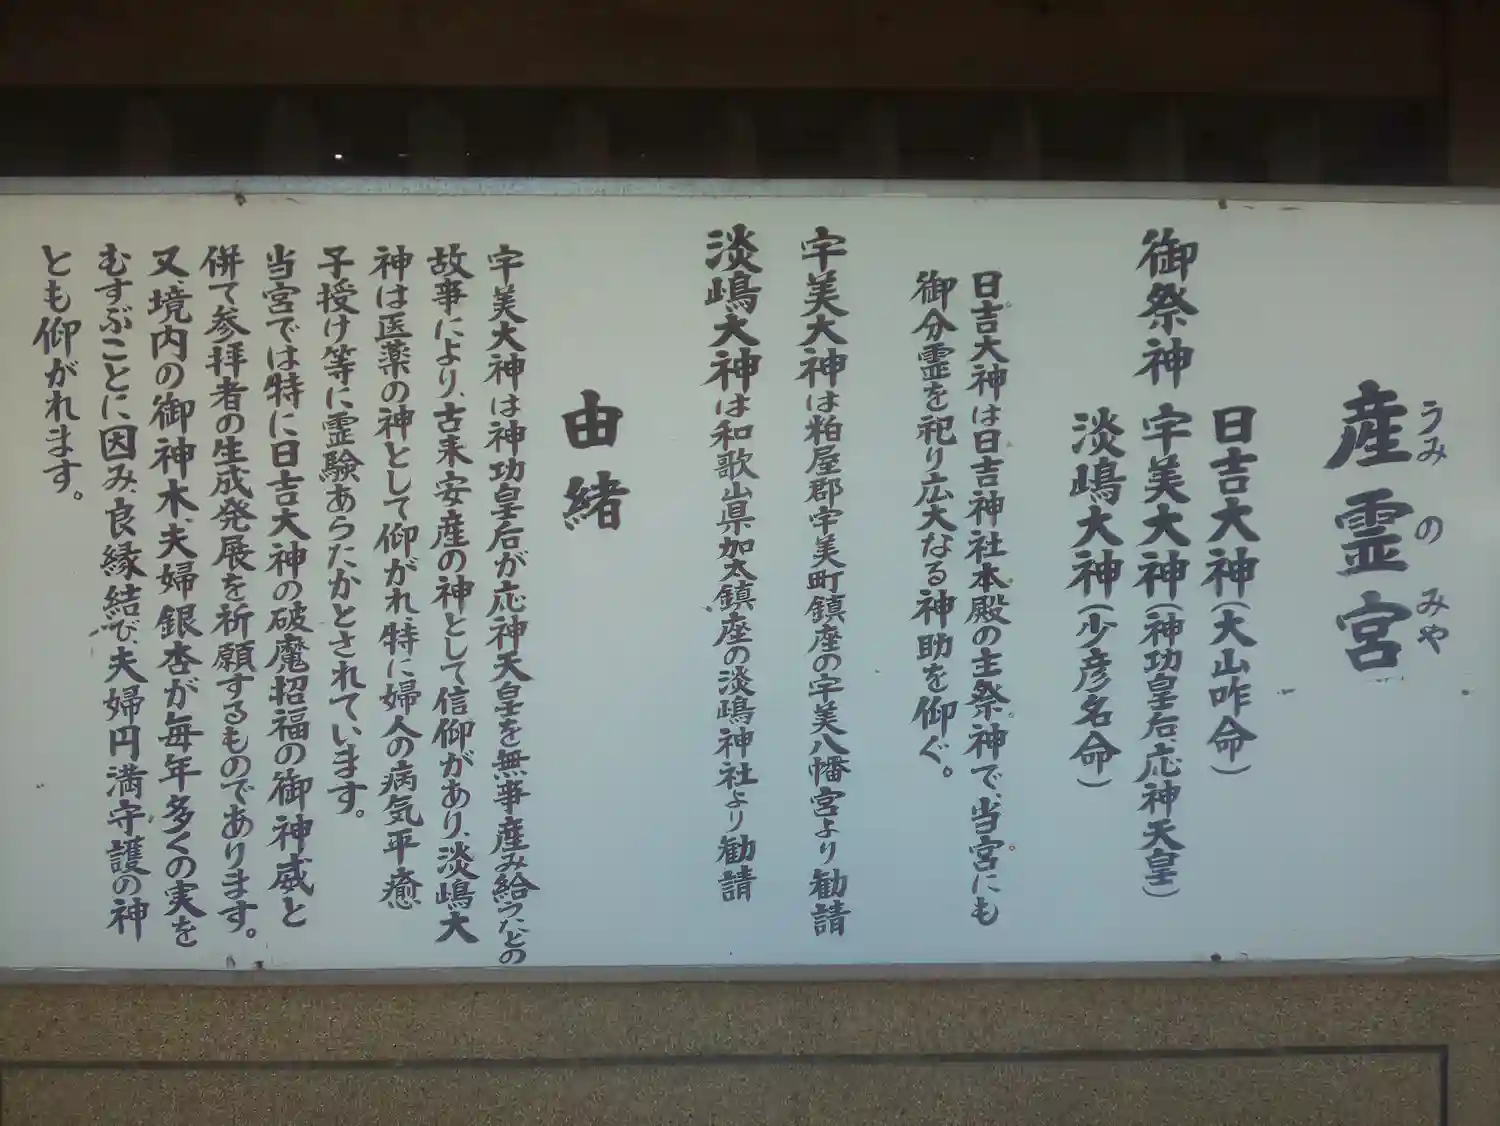 産霊宮
うみのみや
御祭神
日吉大神(大山咋命)
宇美大神(神功皇后、応神天皇)
淡嶋大神(少彦名命)
日吉大神は日吉神社本殿の主祭神で、当宮にも
御分霊を祀り広大なる神助を仰ぐ。
宇美大神は粕屋郡宇美町鎮座の宇美八幡宮より勧請
淡嶋大神は和歌山県加太鎮座の淡嶋神社より勧請
由緒
宇美大神は神功皇后が応神天皇を無事産み給うなどの
故事により、古来安産の神として信仰があり、淡嶋大
神は医薬の神として仰がれ、特に婦人の病気平癒
子授け等に霊験あらたかとされています。
当宮では特に日吉大神の破魔招福の御神威と
併て参拝者の生成発展を祈願するものであります。
又、境内の御神木、夫婦銀杏が毎年多くの実を
むすぶことに因み、良縁結び、夫婦円満守護の神
とも仰がれます。